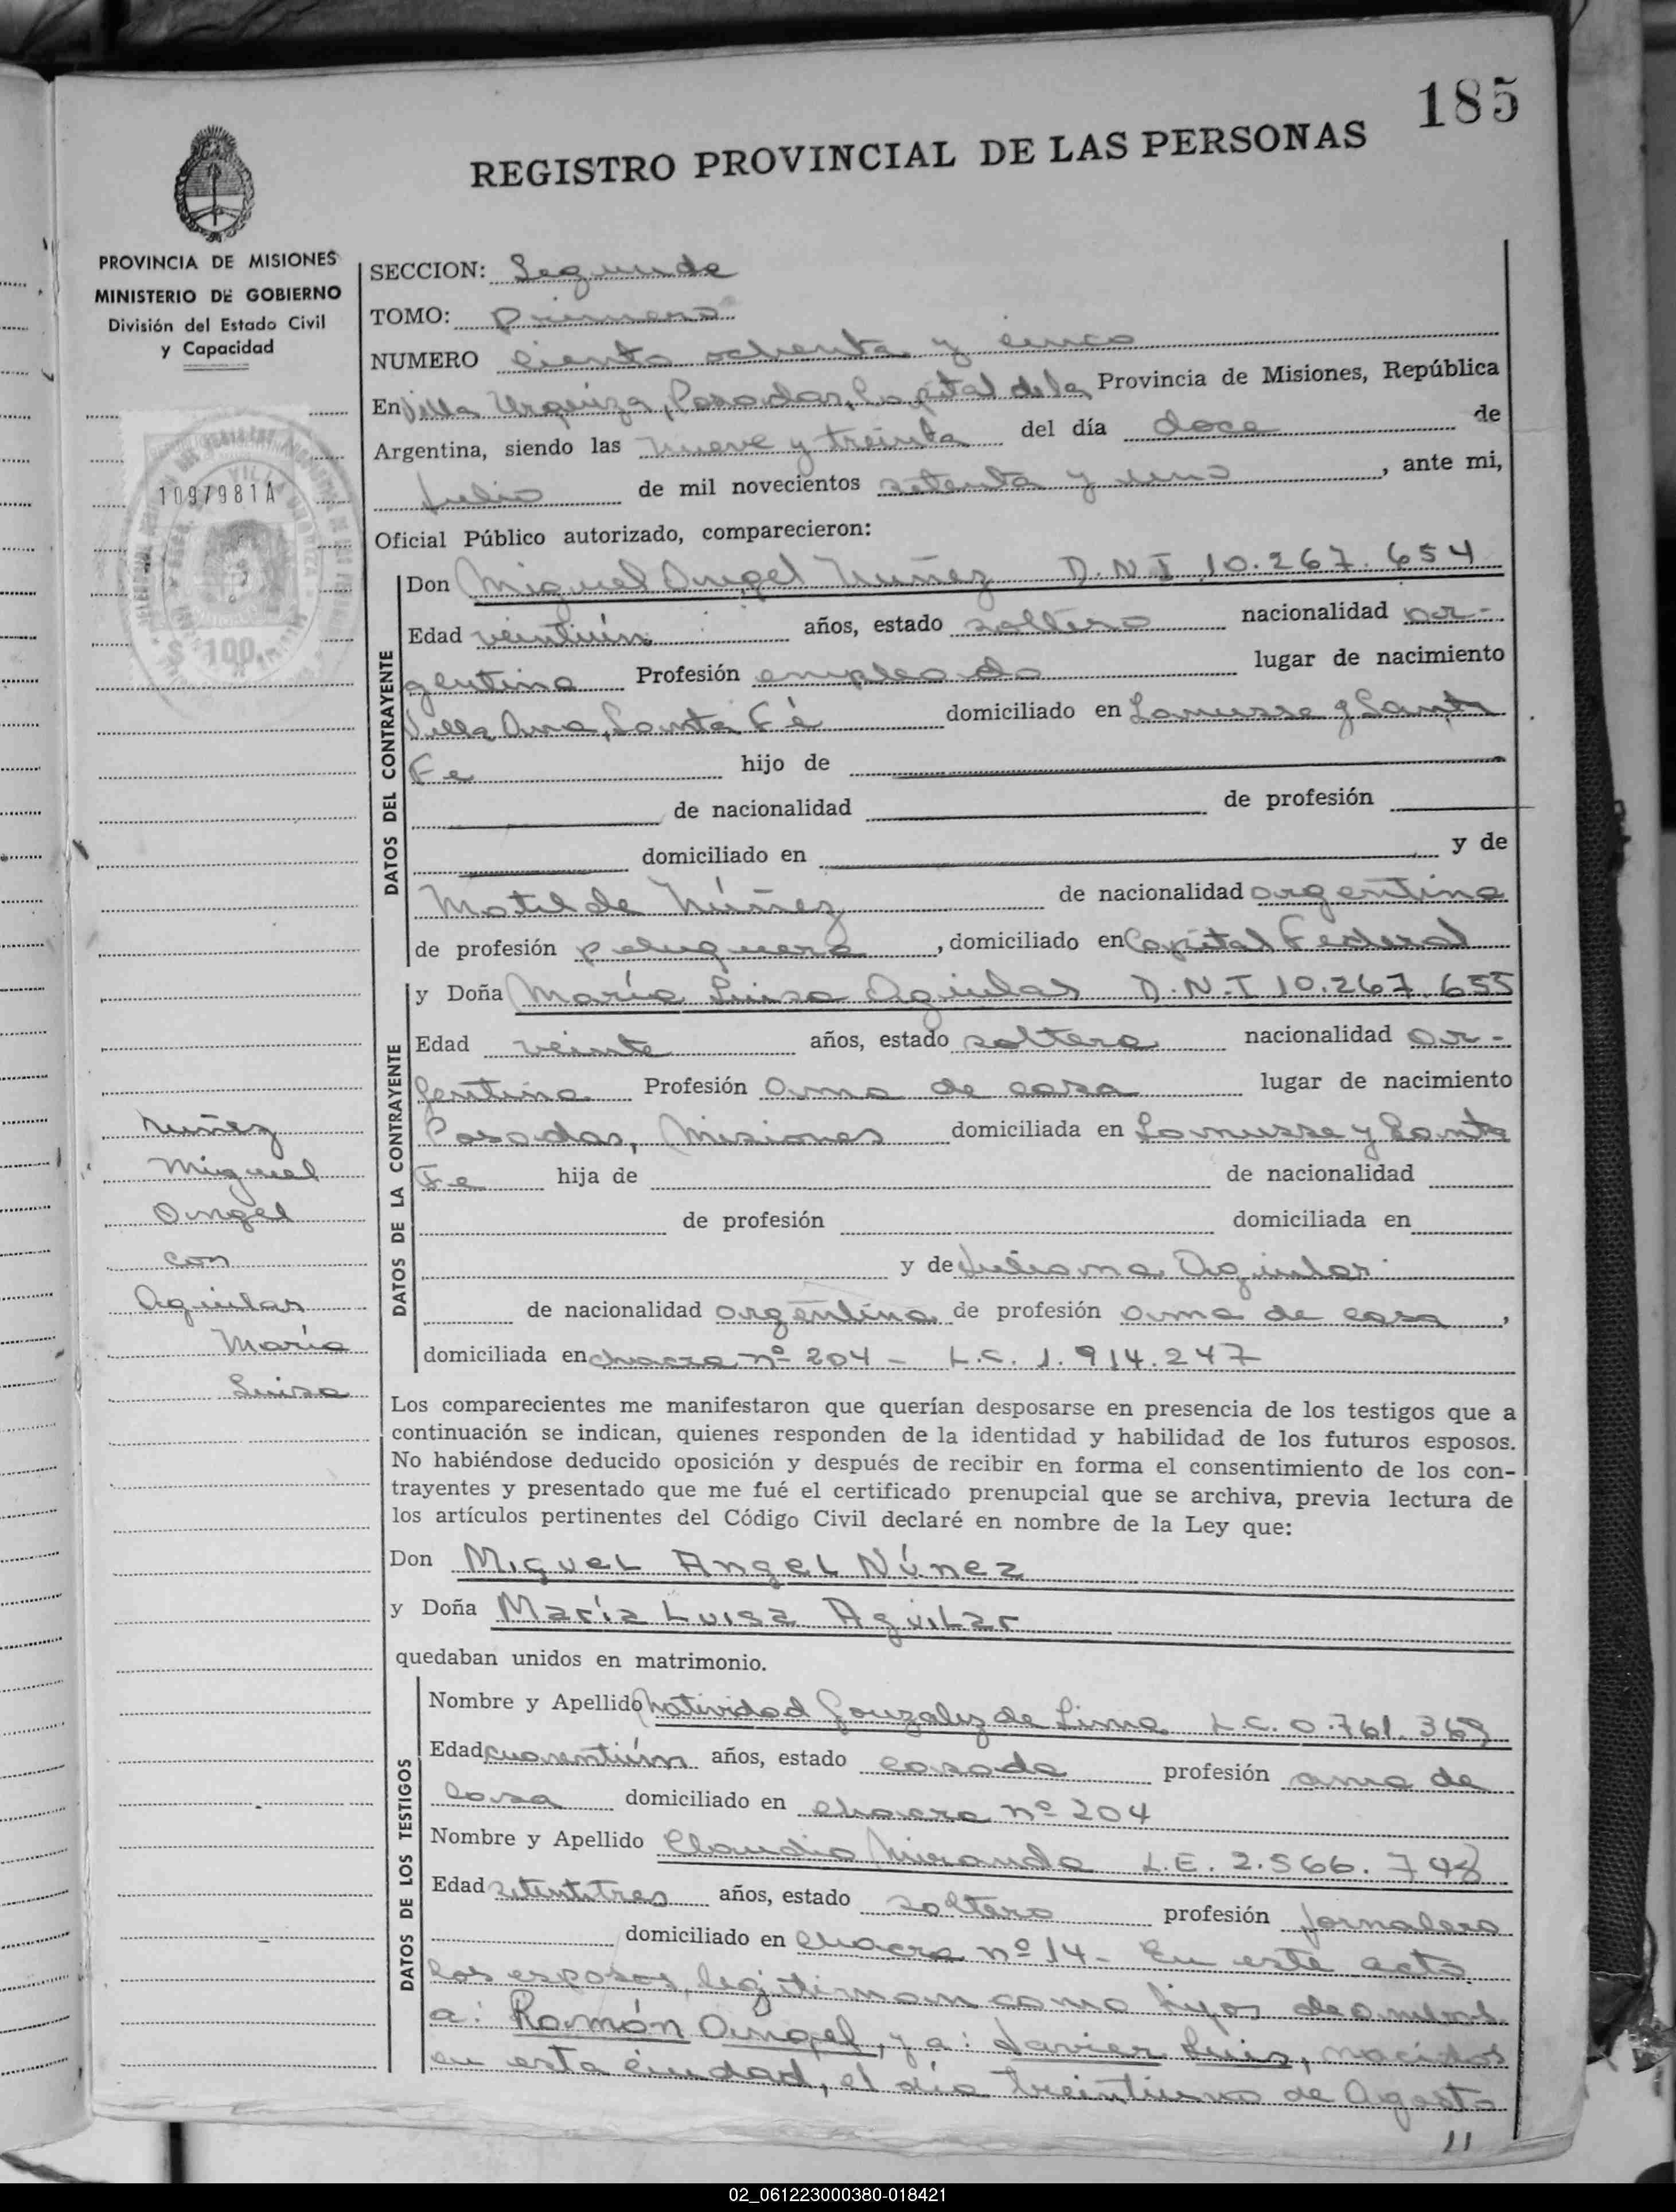 185
REGISTRO PROVINCIAL DE LAS PERSONAS
PROVINCIA DE MISIONES
MINISTERIO DE GOBIERNO
División del Estado Civil
y Capacidad
1097981A
$ 100
SECCION: Segunda
TOMO: Primero
NUMERO ciento ochenta y cinco
En Villa Urquiza, Posadas, Capital de la Provincia de Misiones, República
Argentina, siendo las nueve y treinta del día doce de
Julio de mil novecientos setenta y uno, ante mi,
Oficial Público autorizado, comparecieron:
DATOS DEL CONTRAYENTE
Don Miguel Angel Nuñez D.N.I 10.267.654
Edad veintiún años, estado soltero nacionalidad ar-
gentina Profesión empleado lugar de nacimiento
Villa Ana, Santa Fé domiciliado en Lanusse y Santa
Fe hijo de
de nacionalidad de profesión
domiciliado en y de
Matilde Núñez de nacionalidad argentina
de profesión peluquera, domiciliado en Capital Federal
DATOS DE LA CONTRAYENTE
y Doña María Luisa Aguilar D.N.I 10.267.655
Edad veinte años, estado soltera nacionalidad ar-
gentina Profesión ama de casa lugar de nacimiento
Posadas, Misiones domiciliada en Lanusse y Santa
Fe hija de de nacionalidad
de profesión domiciliada en
y de Juliana Aguilar
de nacionalidad argentina de profesión ama de casa,
domiciliada en chacra nº 204 - L.C. 1.914.247
Nuñez
Miguel
Angel
con
Aguilar
María
Luisa
Los comparecientes me manifestaron que querían desposarse en presencia de los testigos que a
continuación se indican, quienes responden de la identidad y habilidad de los futuros esposos.
No habiéndose deducido oposición y después de recibir en forma el consentimiento de los con-
trayentes y presentado que me fué el certificado prenupcial que se archiva, previa lectura de
los artículos pertinentes del Código Civil declaré en nombre de la Ley que:
Don Miguel Angel Núnez
y Doña María Luisa Aguilar
quedaban unidos en matrimonio.
DATOS DE LOS TESTIGOS
Nombre y Apellido Natividad Gonzalez de Lima L.C. 0.761.369
Edad cuarentiún años, estado casada profesión ama de
casa domiciliado en chacra nº 204
Nombre y Apellido Claudio Miranda L.E. 2.566.748
Edad setentitres años, estado soltero profesión jornalero
domiciliado en chacra nº 14- En este acto
los esposos, legitiman como hijos de ambos
a: Ramón Angel, y a: Javier Luis, nacidos
en esta ciudad, el día treintiuno de Agosto
//
02_061223000380-018421